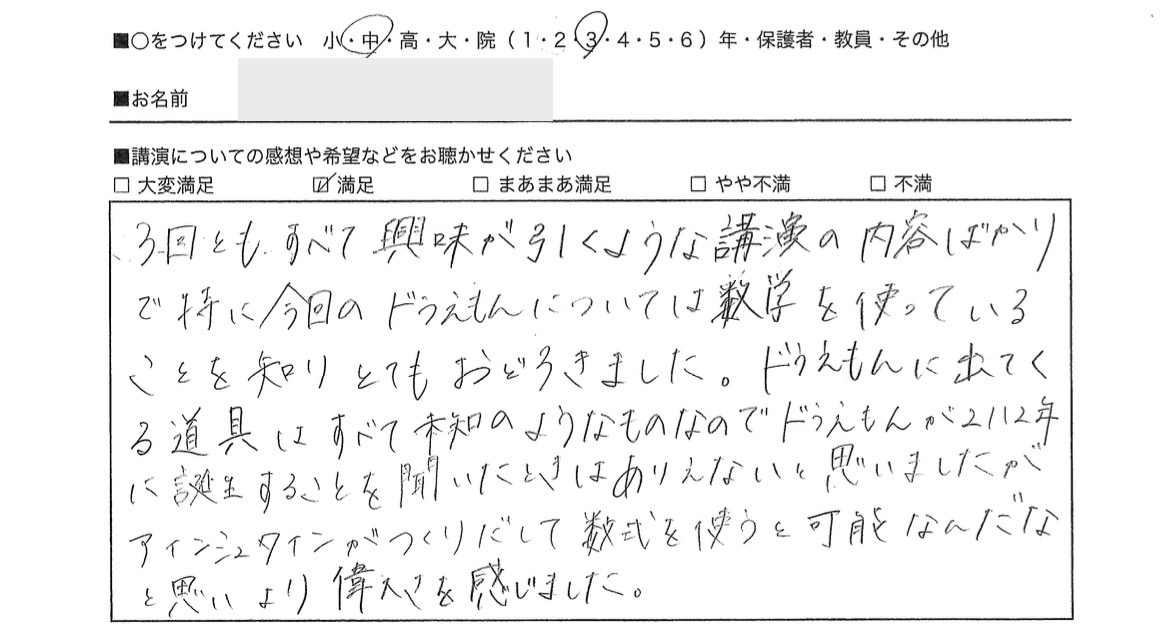 ■○をつけてください 小・中・高・大・院（1・2・3・4・5・6）年・保護者・教員・その他
■お名前
■講演についての感想や希望などをお聴かせください
□ 大変満足 ☑ 満足 □ まあまあ満足 □ やや不満 □ 不満
3回とも すべて 興味が引くような講演の内容ばかり
で特に今回のドラえもんについては数学を使っている
ことを知りとてもおどろきました。ドラえもんに出てく
る道具はすべて未知のようなものなのでドラえもんが2112年
に誕生することを聞いたときはありえないと思いましたが
アインシュタインがつくりだして数式を使うと可能なんだな
と思いより偉大さを感じました。